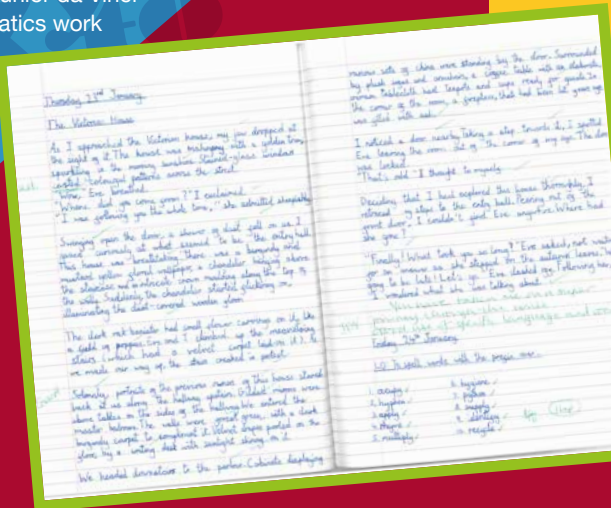 junior da vinci
matics work
Thursday 23rd January
The Victorian House
As I approached the Victorian house, my jaw dropped at
the sight of it. The house was reshaping with a golden trim
sparkling in the morning sunshine. Stained-glass windows
casted colourful patterns across the street.
"Wow," Eve breathed.
"Where did you come from?" I exclaimed.
"I was following you the whole time," she admitted sheepishly.
Swinging open the door, a shower of dust fell on us. I
gazed curiously at what seemed to be the entry hall.
This house was breathtaking. There was a burgundy and
mustard yellow floral wallpaper, a chandelier hanging above
the staircase and an intricate crown moulding along the top of
the walls. Suddenly, the chandelier started flickering on,
illuminating the dust-covered wooden floor.
The dark oak banister had small flower carvings on it, like
a field of poppies. Eve and I climbed up the mesmerising
stairs (which had a velvet carpet laid on it). As
we made our way up, the stairs creaked in protest.
Solemnly, portraits of the previous owners of this house stared
back at us along the hallway. Gilded mirrors were
above tables on the sides of the hallway. We entered the
master bedroom. The walls were green, with a dark
burgundy carpet to complement it. Velvet drapes pooled on the
floor, by a writing desk with sunlight shining on it.
We headed downstairs to the parlour. Cabinets displaying
various sets of china were standing by the door. Surrounded
by plush and ornaments, a coffee table with an elaborate
tablecloth had teapots and cups ready for guests. In
the corner of the room, a fireplace, that had been lit years ago
was filled with ash.
I noticed a door nearby. Taking a step towards it, I spotted
Eve leaving the room out of the corner of my eye. The door
was locked.
"That's odd" I thought to myself.
Deciding that I had explored this house thoroughly, I
retraced my steps to the entry hall. Peering out of the
front door, I couldn't find Eve anywhere. Where had
she gone?
"Finally! What took you so long?" Eve asked, not
for an answer as she stepped on the autumn leaves.
going to be late! Let's go." Eve dashed off. Following her,
I wondered what she was talking about.
Friday 24th January
LO: To spell words with the
1. occupy
2. hyphen
3. apply
4. rhyme
5. multiply
6. hygiene
7. python
8. supply
10. recycle